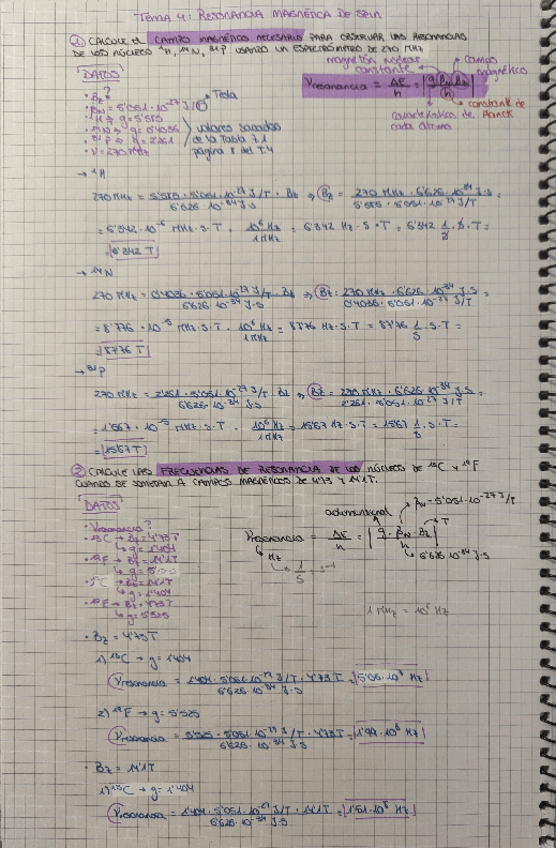 TEMA 4: RESONANCIA MAGNÉTICA DE SPIN
① CALCULE EL CAMPO MAGNÉTICO NECESARIO PARA OBSERVAR LAS RESONANCIAS
DE LOS NÚCLEOS ¹H, ¹⁴N, ³¹P USANDO UN ESPECTRÓMETRO DE 270 MHz
magnetón nuclear
constante
campo
magnético
DATOS
νresonancia = ΔE/h = |g·βN·Bz / h|
· Bz?
· βN = 5'051·10⁻²⁷ J/T → Tesla
· ¹H → g = 5'585
· ¹⁴N → g = 0'4036
· ³¹P → g = 2'261
· ν = 270 MHz
valores sacados
de la Tabla 7.1
página 8 del T4
característico de
cada átomo
constante de
Planck
→ ¹H
270 MHz = 5'585 · 5'051·10⁻²⁷ J/T · Bz / 6'626·10⁻³⁴ J·s ⇒ Bz = 270 MHz · 6'626·10⁻³⁴ J·s / 5'585 · 5'051·10⁻²⁷ J/T =
= 6'342·10⁻⁶ MHz·s·T · 10⁶ Hz / 1 MHz = 6'342 Hz·s·T = 6'342 1/s · s · T =
= 6'342 T
→ ¹⁴N
270 MHz = 0'4036 · 5'051·10⁻²⁷ J/T · Bz / 6'626·10⁻³⁴ J·s ⇒ Bz = 270 MHz · 6'626·10⁻³⁴ J·s / 0'4036 · 5'051·10⁻²⁷ J/T =
= 8'776 · 10⁻⁵ MHz·s·T · 10⁶ Hz / 1 MHz = 87'76 Hz·s·T = 87'76 1/s · s · T =
= 87'76 T
→ ³¹P
270 MHz = 2'261 · 5'051·10⁻²⁷ J/T · Bz / 6'626·10⁻³⁴ J·s ⇒ Bz = 270 MHz · 6'626·10⁻³⁴ J·s / 2'261 · 5'051·10⁻²⁷ J/T =
= 1'567 · 10⁻⁵ MHz·s·T · 10⁶ Hz / 1 MHz = 15'67 Hz·s·T = 15'67 1/s · s · T =
= 15'67 T
② CALCULE LAS FRECUENCIAS DE RESONANCIA DE LOS NÚCLEOS DE ¹³C Y ¹⁹F
CUANDO SE SOMETAN A CAMPOS MAGNÉTICOS DE 4'73 Y 14'1T.
DATOS
adimensional
βN = 5'051·10⁻²⁷ J/T
· νresonancia?
· ¹³C → Bz = 4'73T
↳ g = 1'404
· ¹⁹F → Bz = 14'1T
· ¹³C → Bz = 14'1T
↳ g = 1'404
· ¹⁹F → Bz = 4'73T
↳ g = 5'525
νresonancia = ΔE/h = |g · βN · Bz / h|
T
6'626·10⁻³⁴ J·s
Hz
↳ 1/s = s⁻¹
1 MHz = 10⁶ Hz
· Bz = 4'73T
1) ¹³C → g = 1'404
νresonancia = 1'404 · 5'051·10⁻²⁷ J/T · 4'73 T / 6'626·10⁻³⁴ J·s = 5'06·10⁷ Hz
2) ¹⁹F → g = 5'525
νresonancia = 5'525 · 5'051·10⁻²⁷ J/T · 4'73T / 6'626·10⁻³⁴ J·s = 1'99·10⁸ Hz
· Bz = 14'1T
1) ¹³C → g = 1'404
νresonancia = 1'404 · 5'051·10⁻²⁷ J/T · 14'1T / 6'626·10⁻³⁴ J·s = 1'51·10⁸ Hz